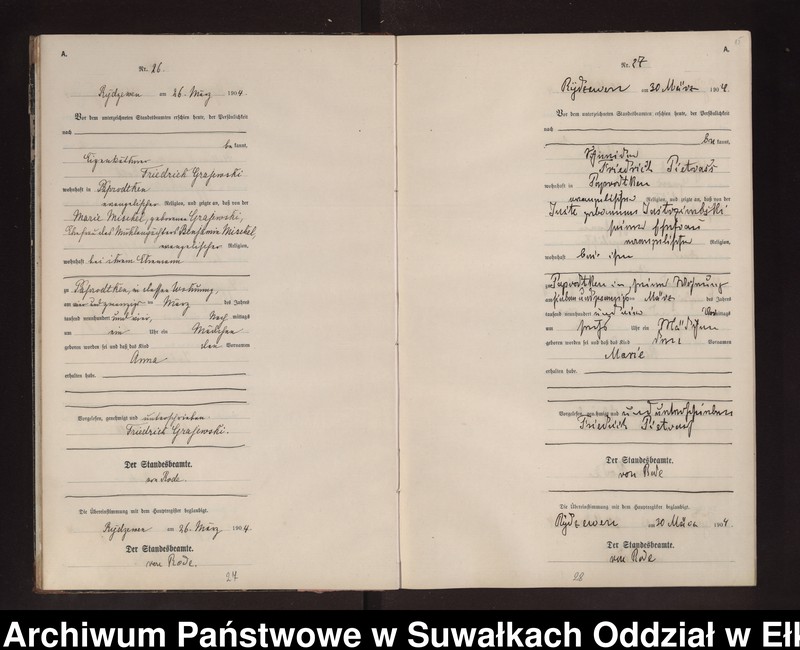 A.
Nr. 26.
Rydzewen am 26. März 1904.
Vor dem unterzeichneten Standesbeamten erschien heute, der Persönlichkeit
nach
bekannt,
Eigenkäthner
Friedrich Grajewski
wohnhaft in Paprodtken
evangelischer Religion, und zeigte an, daß von der
Marie Mischel, geborenen Grajewski,
Ehefrau des Benjamin Mischel,
evangelischer Religion,
wohnhaft bei ihrem Ehemann
zu Paprodtken, in dessen Wohnung,
am März des Jahres
tausend neunhundert und vier, Nachmittags
um ein Uhr ein Mädchen
geboren worden sei und daß das Kind den Vornamen
Anna
erhalten habe.
Vorgelesen, genehmigt und unterschrieben
Friedrich Grajewski.
Der Standesbeamte.
von Rode.
Die Übereinstimmung mit dem Hauptregister beglaubigt.
Rydzewen am 26. März 1904.
Der Standesbeamte.
von Rode.
27
A.
Nr. 27
Rydzewen am 30 März 1904.
Vor dem unterzeichneten Standesbeamten erschien heute, der Persönlichkeit
nach
bekannt,
Friedrich
wohnhaft in Paprodtken
evangelischer Religion, und zeigte an, daß von der
geborenen
seiner Ehefrau
evangelischer Religion,
wohnhaft bei ihm
zu Paprodtken in seiner Wohnung
am sieben und zwanzigsten März des Jahres
tausend neunhundert und vier Vormittags
um sechs Uhr ein Mädchen
geboren worden sei und daß das Kind den Vornamen
Marie
erhalten habe.
Vorgelesen, genehmigt und unterschrieben
Friedrich
Der Standesbeamte.
von Rode
Die Übereinstimmung mit dem Hauptregister beglaubigt.
Rydzewen am 30 März 1904.
Der Standesbeamte.
von Rode
28
Archiwum Państwowe w Suwałkach Oddział w Ełk